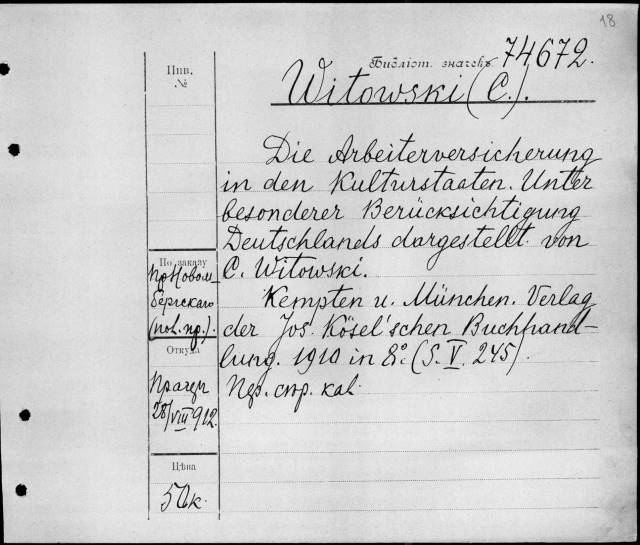 18
Библіот. значекъ 74672.
Witowski (C.).
Инв.
№
Die Arbeiterversicherung
in den Kulturstaaten. Unter
besonderer Berücksichtigung
Deutschlands dargestellt von
C. Witowski.
Kempten u. München. Verlag
der Jos. Kösel'schen Buchhand-
lung. 1910 in 8.° (S. V. 245)
По заказу
Новом-
бергскаго
Откуда
Праги
28/VIII 912.
Цѣна
50к.